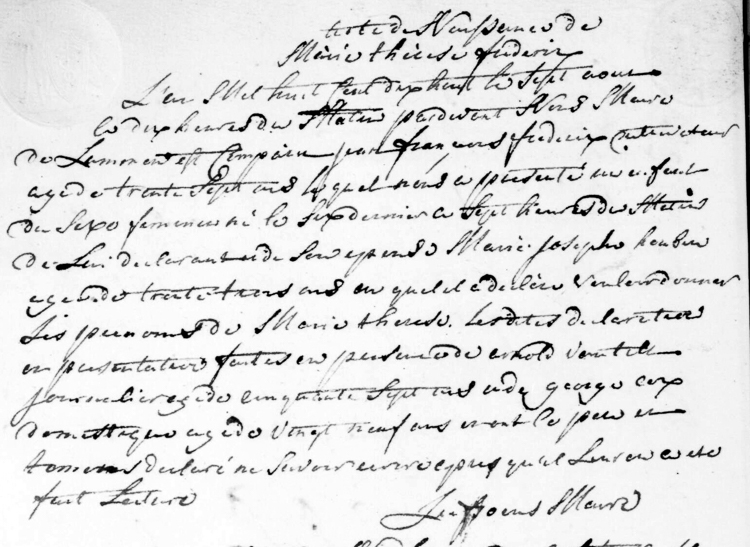 acte de Naissance de
Marie thérèse frederix
L'an Mil huit Cent dix huit le Sept aout
a dix heures du Matin pardevant Nous Maire
de Lommen est Comparu par françois frederix cultivateur
agé de trente Sept ans lequel nous a présenté un enfant
du Sexe femenin né le six dernier a Sept heures du Matin
de Lui declarant et de Son epouse Marie Joseph houben
agée de trente trois ans en quel il a declaré vouloir donner
les prenoms de Marie therese. Lesdites declaration
en presentation faites en presence de arnold
journalier agé de cinquante Sept ans et de george cox
domestique agé de vingt neuf ans et ont le pere et
temoins declaré ne Savoir ecrire apres qu'il Leur en a été
fait Lecture
Maire